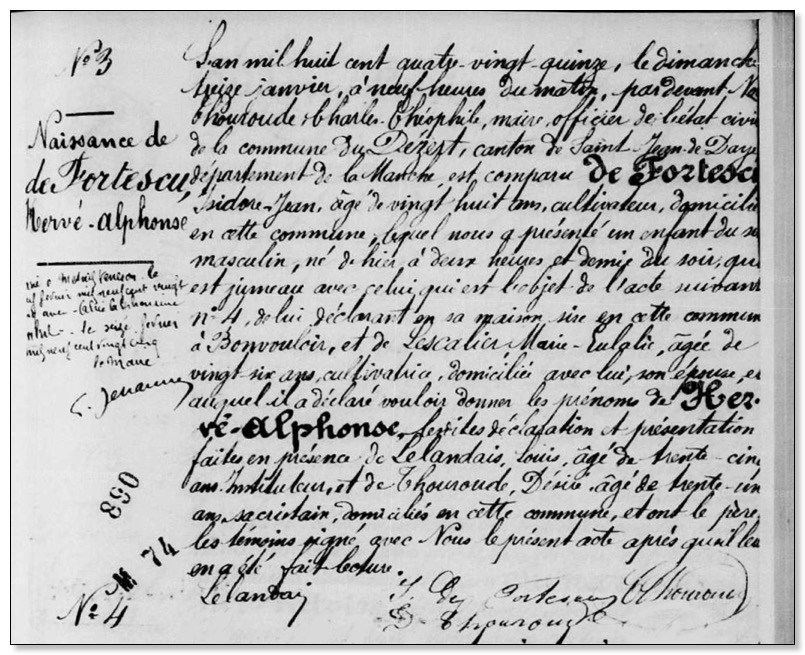 N° 3
Naissance de
de Fortescu,
Hervé-Alphonse
le
février mil neuf cent vingt
le seize février
mil neuf cent vingt cinq
le Maire
L'an mil huit cent quatre-vingt-quinze, le dimanche
treize janvier, à neuf heures du matin, par devant No
Thouroude Charles-Théophile, maire, officier de l'état civil
de la commune du Dézert, canton de Saint Jean-de Daye
département de la Manche, est comparu de Fortesc
Isidore-Jean, âgé de vingt huit ans, cultivateur, domicilié
en cette commune, lequel nous a présenté un enfant du se
masculin, né de hier, à deux heures et demie du soir, qui
est jumeau avec celui, qui est l'objet de l'acte suivant
n° 4, de lui déclarant en sa maison sise en cette commun
à Bonvouloir, et de Lescalier Marie-Eulalie, âgée de
vingt-six ans, cultivatrice, domiciliée avec lui, son épouse, et
auquel il a déclaré vouloir donner les prénoms de Her-
vé-Alphonse, lesdites déclaration et présentation
faites en présence de Lelandais, Louis, âgé de trente-cinq
ans, Instituteur, et de Thouroude, Désiré, âgé de trente-un
ans, sacristain, domiciliés en cette commune, et ont le père,
les témoins signé avec Nous le présent acte après qu'il leu
en a été fait lecture.
Lelandais
J. De Fortescu
Thouroude
D Thouroude
890
M 74
N° 4